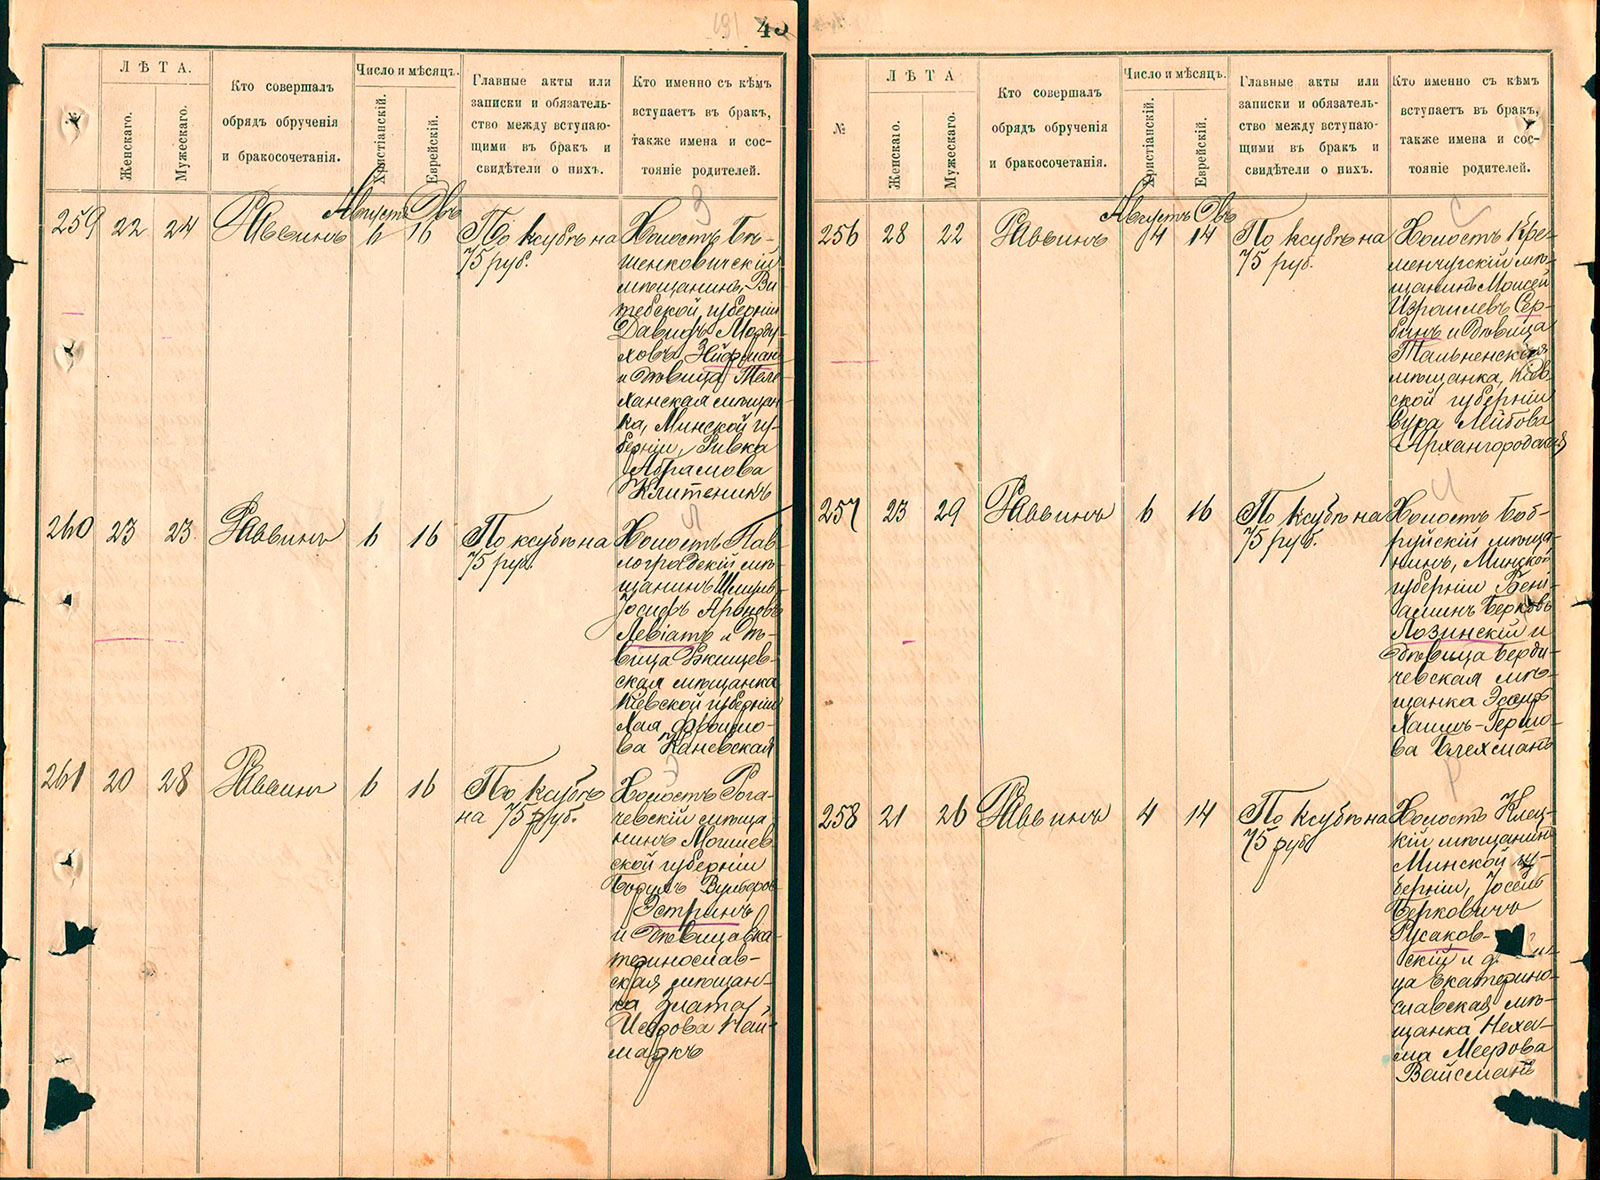 191
43
ЛѢТА.
Женскаго.
Мужескаго.
Кто совершалъ
обрядъ обрученія
и бракосочетанія.
Число и мѣсяцъ.
Христіанскій.
Еврейскій.
Главные акты или
записки и обязатель-
ство между вступаю-
щими въ бракъ и
свидѣтели о нихъ.
Кто именно съ кѣмъ
вступаетъ въ бракъ,
также имена и сос-
тояніе родителей.
Августъ Овъ
259 22 24 Раввинъ 6 16 По ксубѣ на
75 руб.
З
Холостъ Бѣ-
шенковичскій
мѣщанинъ, Ви-
тебской губерніи
Давидъ Морду-
ховъ Нейфман
и дѣвица Теле-
ханская мѣщан-
ка, Минской гу-
берніи, Ривка
Абрамова
Клитеникъ
260 23 23 Раввинъ 6 16 По ксубѣ на
75 руб.
Л
Холостъ Пав-
лоградскій мѣ-
щанинъ Шмуилъ
Іосифъ Ароновъ
Левіатъ и дѣ-
вица Ржищев-
ская мѣщанка
Кіевской губерніи
Хая Фроимо-
ва Каневская
261 20 28 Раввинъ 6 16 По ксубѣ
на 75 руб.
Э
Холостъ Рога-
чевскій мѣща-
нинъ Могилев
ской губерніи
Борухъ Вульфов
Эстринъ
и дѣвица Ека-
теринослав-
ская мѣщан-
ка Злата
Исерова Най-
маркъ
№
ЛѢТА
Женскаго.
Мужескаго.
Кто совершалъ
обрядъ обрученія
и бракосочетанія.
Число и мѣсяцъ.
Христіанскій.
Еврейскій.
Главные акты или
записки и обязатель-
ство между вступаю-
щими въ бракъ и
свидѣтели о нихъ.
Кто именно съ кѣмъ
вступаетъ въ бракъ,
также имена и сос-
тояніе родителей.
Августъ Овъ
256 28 22 Раввинъ 4 14 По ксубѣ на
75 руб.
С
Холостъ Кре-
менчугскій мѣ-
щанинъ Моисей
Израилевъ Сер-
бинъ и дѣвица
Тальненская
мѣщанка, Кіев-
ской губерніи
Сура Лейбова
Архангородская
257 23 29 Раввинъ 6 16 По ксубѣ на
75 руб.
Л
Холостъ Боб-
руйскій мѣща-
нинъ, Минской
губерніи Бені-
аминъ Берковъ
Лозинскій и
дѣвица Берди-
чевская мѣ-
щанка Эсѳирь
Хаимъ-Гершо-
ва
258 21 26 Раввинъ 4 14 По ксубѣ на
75 руб
Р
Холостъ Клец-
кій мѣщанинъ
Минской гу-
берніи, Іосель
Берковичъ
Русаков-
скій и
ца Екатерино-
славская мѣ-
щанка Неха-
ма Меерова
Вайсманъ